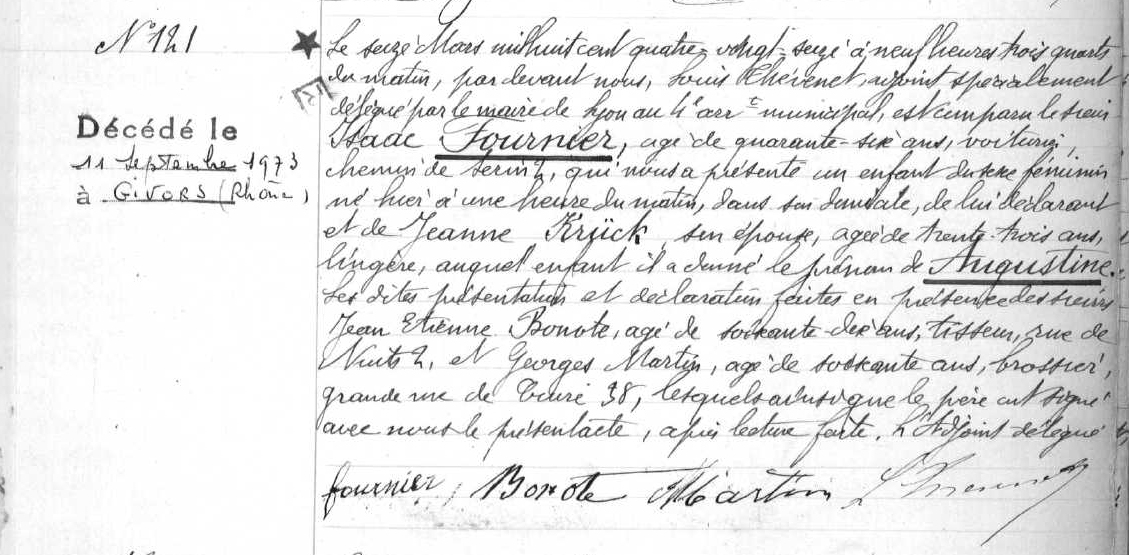 N° 121
Décédé le
11 Septembre 1973
à GIVORS (Rhône)
Le seize Mars mil huit cent quatre-vingt-seize à neuf heures trois quarts
du matin, par devant nous, Louis Thévenet, adjoint spécialement
délégué par le maire de Lyon au 4e arrt municipal, est comparu le sieur
Isaac Fournier, agé de quarante-six ans, voiturier,
chemin de Serin 2, qui nous a présenté un enfant du sexe féminin
né hier à une heure du matin, dans son domicile, de lui déclarant
et de Jeanne Krück, son épouse, agée de trente-trois ans,
lingère, auquel enfant il a donné le prénom de Augustine.
Les dites présentation et déclaration faites en présence des sieurs
Jean Etienne Bonote, agé de soixante-dix ans, tisseur, rue de
Nuits 2, et Georges Martin, agé de soixante ans, brossier,
grande rue de Cuire 38, lesquels ainsi que le père ont signé
avec nous le présent acte, après lecture faite. L'Adjoint délégué
fournier Bonote Martin